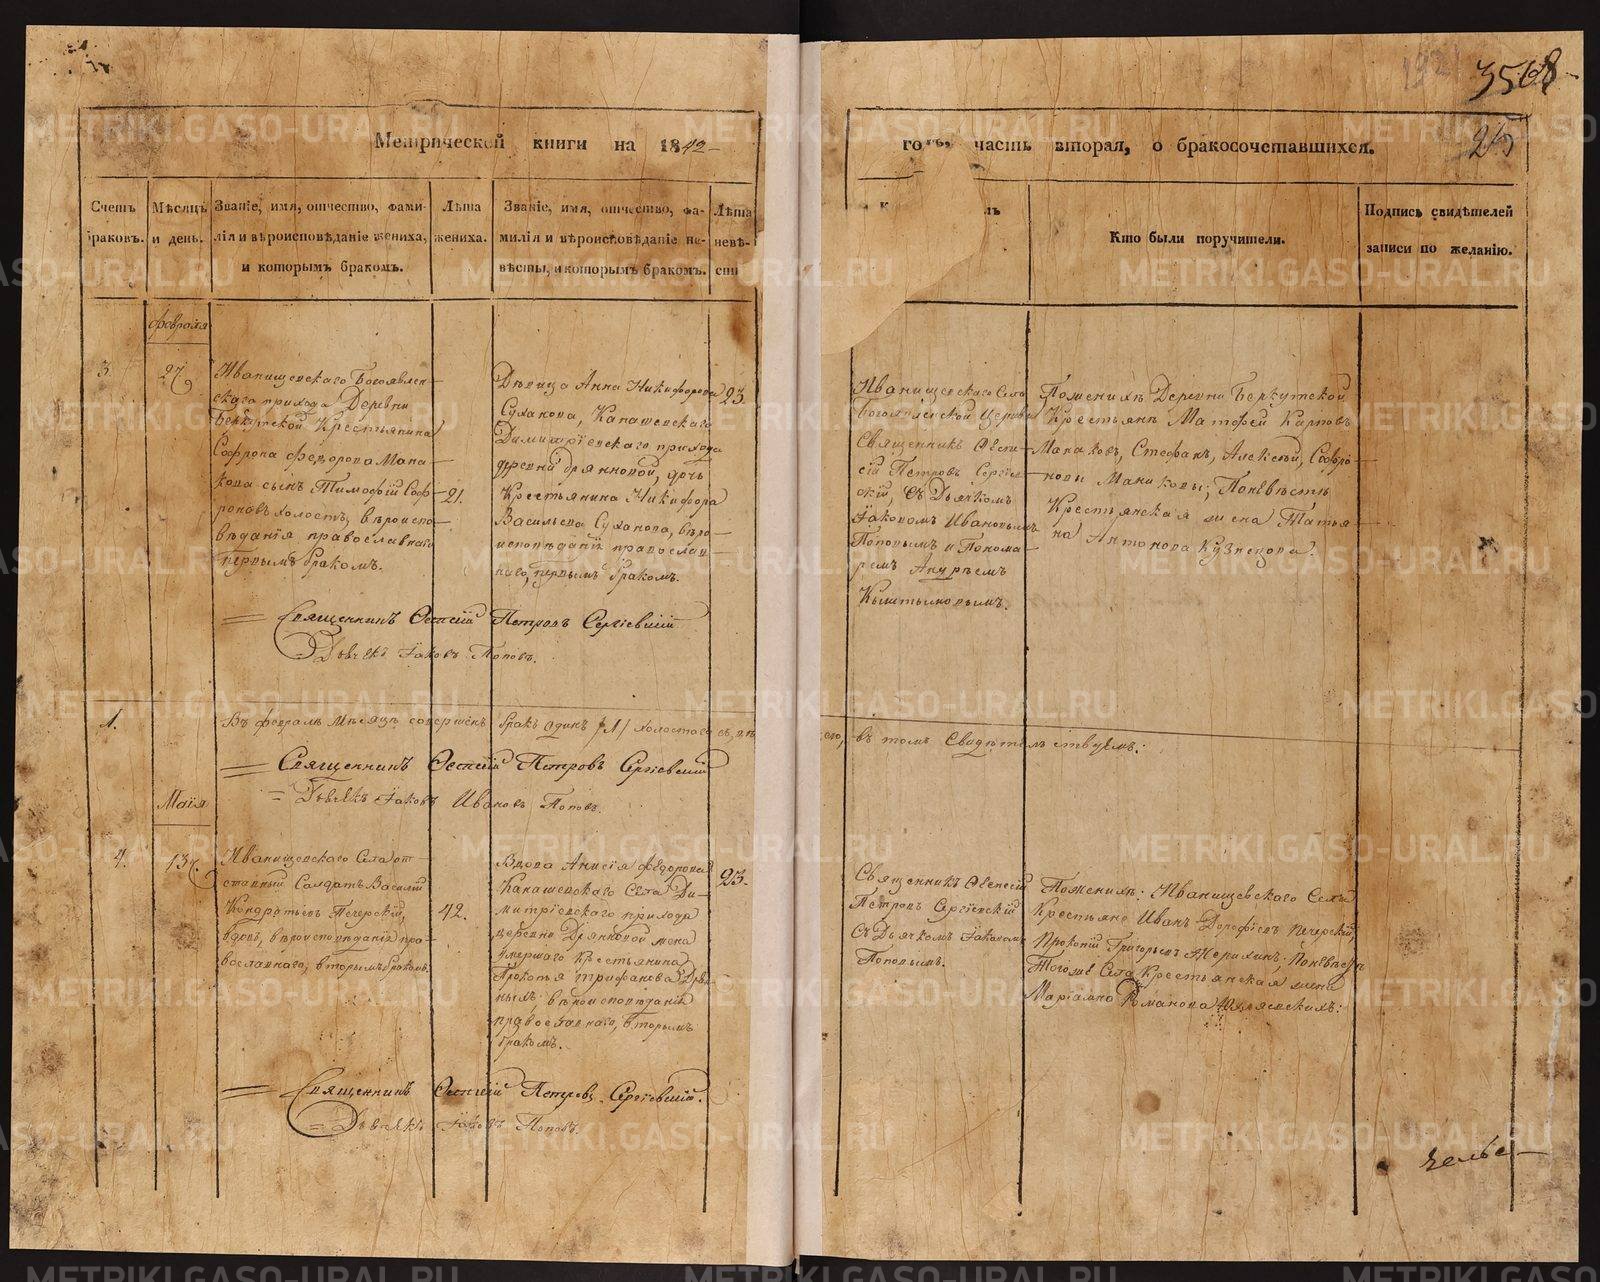 3568
25
Метрической книги на 1842
годъ, часть вторая, о бракосочетавшихся.
Счетъ браковъ.
Мѣсяцъ и день.
Званіе, имя, отчество, фамилія и вѣроисповѣданіе жениха, и которымъ бракомъ.
Лѣта жениха.
Званіе, имя, отчество, фамилія и вѣроисповѣданіе невѣсты, и которымъ бракомъ.
Лѣта невѣсты
Кто были поручители.
Подпись свидѣтелей записи по желанію.
февраля
3.
27
Иванищевскаго Богоявлен-
скаго прихода Деревни
Беркутской Крестьянина
Софрона Федорова Мана-
кова сынъ Тимофій Соф-
роновъ холостъ, вѣроиспо-
вѣданія православнаго
первымъ бракомъ.
21.
Дѣвица Анна Никифорова
Суханова, Канашевскаго
Димитріевскаго прихода
деревни Дрянновой, дочь
Крестьянина Никифора
Васильева Суханова, вѣро-
исповѣданія православ-
наго, первымъ бракомъ.
23.
Иванищевскаго Села
Богоявленской Церкви
Священникъ Евсе-
вій Петровъ Сергіев-
скій, съ Дьячкомъ
Іаковомъ Ивановымъ
Поповымъ и Понома-
ремъ
По женихѣ Деревни Беркутской
Крестьяне Матфей Карповъ
Манаковъ, Стефанъ, Алексѣй, Софро-
новы Манаковы; По невѣстѣ
Крестьянская жена Татья-
на Антонова Кузнецова.
Священникъ Евсевій Петровъ Сергіевскій
Дьячекъ Іаковъ Поповъ.
1.
Въ февралѣ мѣсяцѣ совершенъ бракъ одинъ /1/ холостаго съ дѣв
ею, въ томъ Свидѣтельствуемъ:
Священникъ Евсевій Петровъ Сергіевскій
Дьячекъ Іаковъ Ивановъ Поповъ.
Маія
4.
13
Иванищевскаго Села от-
ставный Салдатъ Василій
Кондратьевъ Печерскій,
вдовъ, вѣроисповѣданія пра-
вославнаго, вторымъ бракомъ.
42.
Вдова Анисія Федорова
Канашевскаго Села Ди-
митріевскаго прихода
деревни Дрянновой жена
умершаго Крестьянина
Прокопья Трифанова
вѣроисповѣданія
православнаго, вторымъ
бракомъ.
23.
Священникъ Евсевій
Петровъ Сергіевскій
съ Дьячкомъ Іаковомъ
Поповымъ.
По женихѣ: Иванищевскаго Села
Крестьяне Иванъ Дорофіевъ Печерскій,
Прокопій Григорьевъ; По невѣстѣ
Тогоже Села Крестьянская жена
Маріамна Романова
Священникъ Евсевій Петровъ Сергіевскій.
Дьячекъ Іаковъ Поповъ.